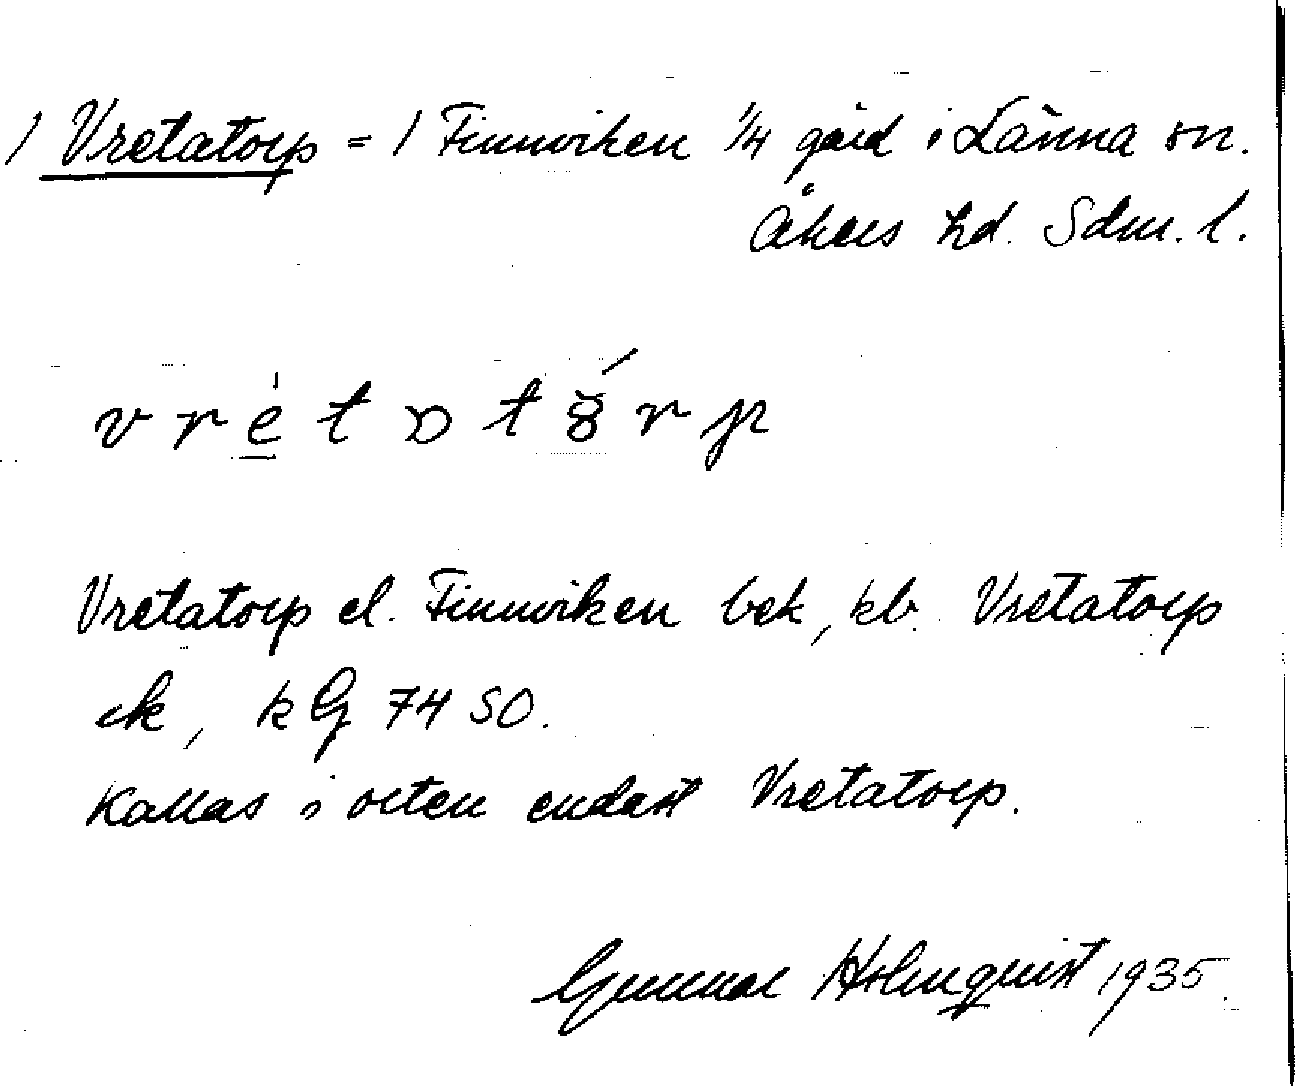 1 Vretatorp = 1 Finnviken 1/4 gård i Länna sn.
Åkers hd. Sdm. l.
Vretatorp el. Finnviken bek, kb. Vretatorp
ek, kG 74 SO.
Kallas i orten endast Vretatorp.
Gunnar Holmquist 1935.